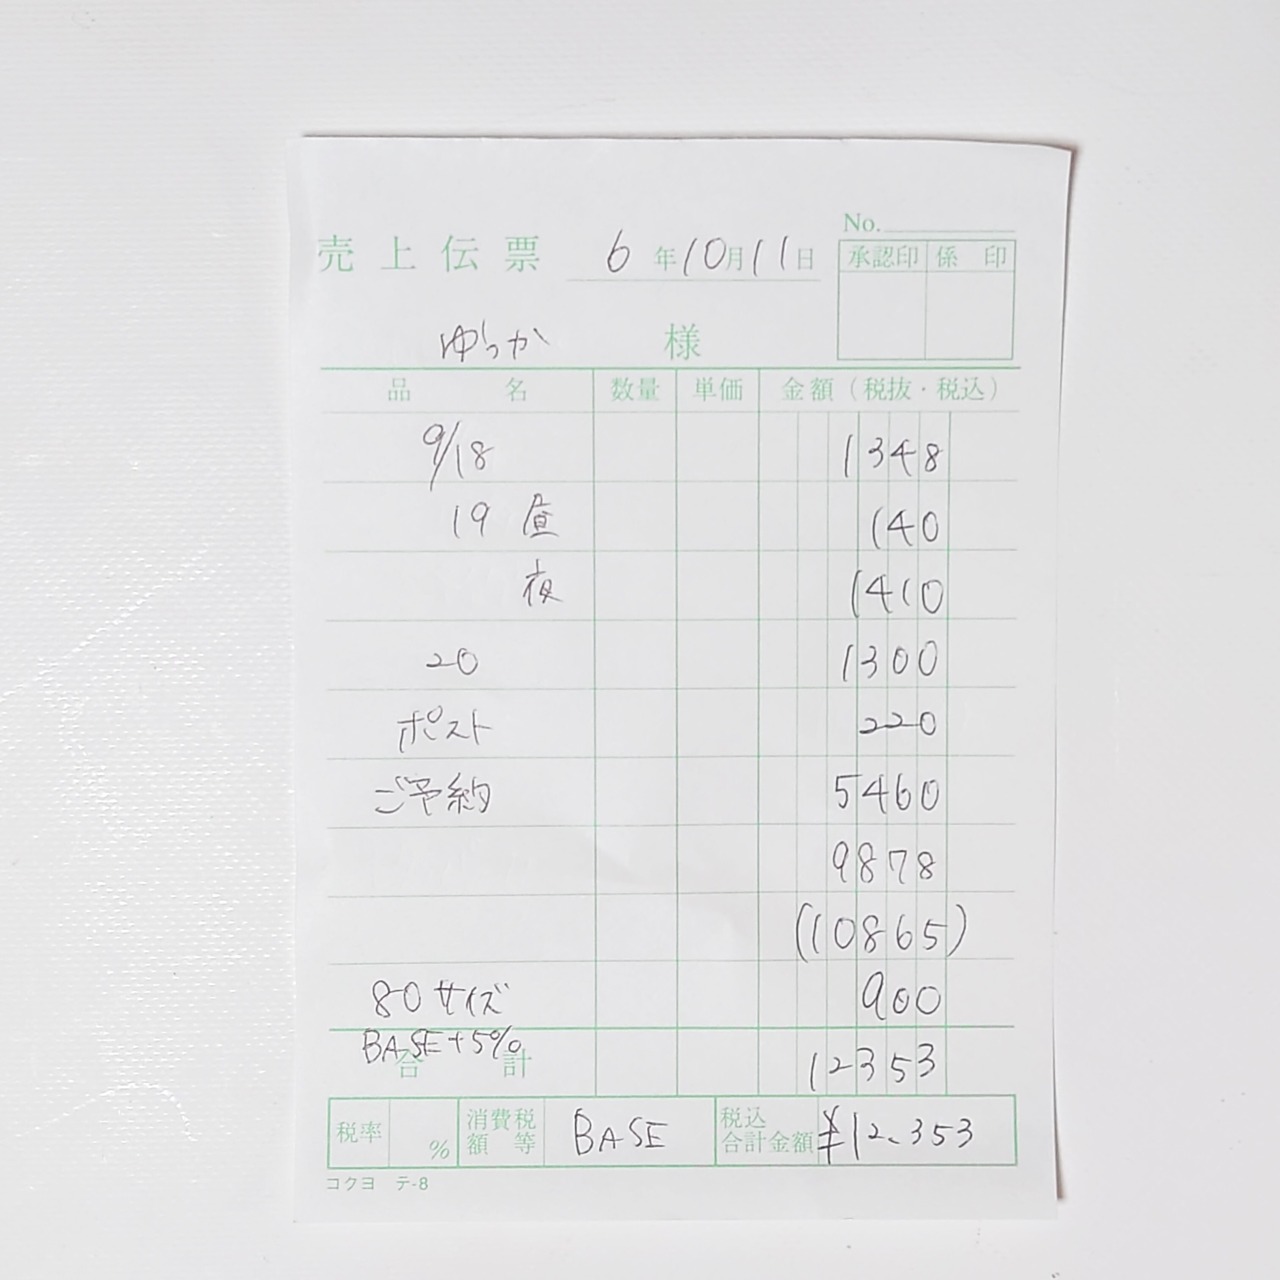 No.
売上伝票 6年10月11日
承認印 係印
ゆっか 様
品名 数量 単価 金額(税抜・税込)
9/18 1348
19 昼 140
夜 1410
20 1300
ポスト 220
ご予約 5460
9878
(10865)
80サイズ 900
BASE+5%
合計 12353
税率 % 消費税額等 BASE 税込合計金額 ¥12.353
コクヨ テ-8